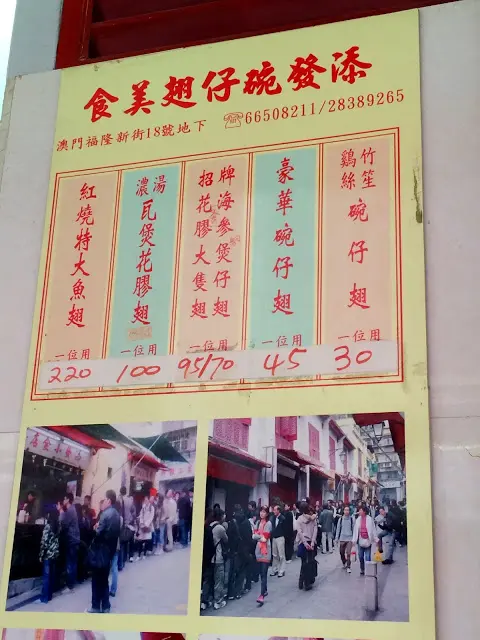 添發碗仔翅美食
澳門福隆新街18號地下 ☏66508211/28389265
竹笙
鷄絲
碗仔翅
一位用
30
豪華碗仔翅
一位用
45
招牌
海參煲仔翅
花膠大隻翅
一位用
95/70
濃湯
瓦煲花膠翅
一位用
100
紅燒特大魚翅
一位用
220